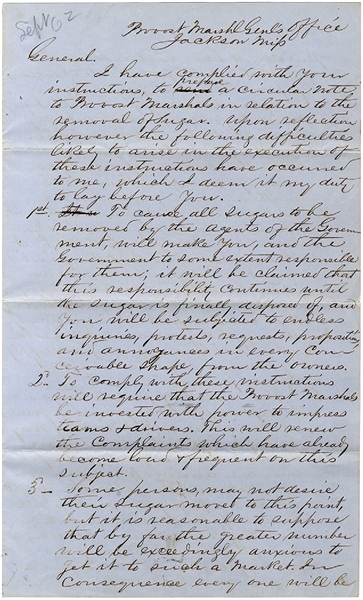 Sept 62
Provost Marshl Genl's Office
Jackson Miss
General.
I have complied with Your
instructions, to prepare a circular Note,
to Provost Marshals in relation to the
removal of Sugar. Upon reflection
however the following difficulties
likely to arise in the execution of
these instructions have occured
to me, which I deem it my duty
to lay before You.
1st. To cause all Sugars to be
removed by the agents of the Govern
ment, will make You, and the
Government to some extent responsible
for them; it will be claimed that
this responsibility continues until
the Sugar is finally disposed of, and
You will be subjected to endless
inquiries, protests, requests, propositions
and annoyances in every con
ceivable shape, from the owners.
2d. To comply with these instructions
will require that the Provost Marshals
be invested with power to impress
teams & drivers. This will renew
the Complaints which have already
become loud & frequent on this
subject.
3 — Some persons, may not desire
their Sugar moved to this point,
but it is reasonable to suppose
that by far the greater number
will be exceedingly anxious to
get it to such a Market. In
Consequence every one will be